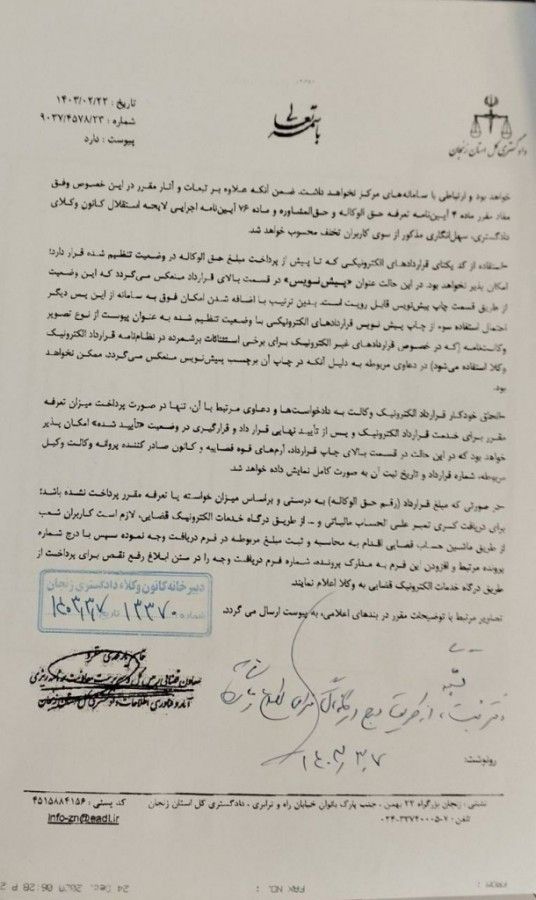 باسمه تعالی
دادگستری کل استان زنجان
تاریخ : ۱۴۰۳/۰۲/۲۲
شماره : ۹۰۳۷/۴۵۷۸/۲۳
پیوست : دارد
خواهد بود و ارتباطی با سامانه‌های مرکز نخواهد داشت. ضمن آنکه علاوه بر تبعات و آثار مقرر در این خصوص وفق
مفاد مقرر ماده ۴ آیین‌نامه تعرفه حق الوکاله و حق‌المشاوره و ماده ۷۶ آیین‌نامه اجرایی لایحه استقلال کانون وکلای
دادگستری، سهل‌انگاری مذکور از سوی کاربران تخلف محسوب خواهد شد.
-استفاده از کد یکتای قراردادهای الکترونیکی که تا پیش از پرداخت مبلغ حق الوکاله در وضعیت تنظیم شده قرار دارد؛
امکان پذیر نخواهد بود. در این حالت عنوان «پیش‌نویس» در قسمت بالای قرارداد منعکس می‌گردد که این وضعیت
از طریق قسمت چاپ پیش‌نویس قابل رویت است. بدین ترتیب با اضافه شدن امکان فوق به سامانه از این پس دیگر
احتمال استفاده سوء از چاپ پیش نویس قراردادهای الکترونیکی با وضعیت تنظیم شده به عنوان پیوست از نوع تصویر
وکالتنامه (که در خصوص قراردادهای غیر الکترونیک برای برخی استثنائات برشمرده در نظام‌نامه قرارداد الکترونیک
وکلا استفاده می‌شود) در دعاوی مربوطه به دلیل آنکه در چاپ آن برچسب پیش‌نویس منعکس می‌گردد، ممکن نخواهد
بود.
-الحاق خودکار قرارداد الکترونیک وکالت به دادخواست‌ها و دعاوی مرتبط با آن، تنها در صورت پرداخت میزان تعرفه
مقرر برای خدمت قرارداد الکترونیک و پس از تأیید نهایی قرار داد و قرارگیری در وضعیت «تأیید شده» امکان پذیر
خواهد بود که در این حالت در قسمت بالای چاپ قرارداد، آرم‌های قوه قضاییه و کانون صادر کننده پروانه وکالت وکیل
مربوطه، شماره قرارداد و تاریخ ثبت آن به صورت کامل نمایش داده خواهد شد.
-در صورتی که مبلغ قرارداد (رقم حق الوکاله) به درستی و براساس میزان خواسته یا تعرفه مقرر پرداخت نشده باشد؛
برای دریافت کسری تمبر علی الحساب مالیاتی و ... از طریق درگاه خدمات الکترونیک قضایی، لازم است کاربران شعب
از طریق ماشین حساب قضایی اقدام به محاسبه و ثبت مبلغ مربوطه در فرم دریافت وجه نموده سپس با درج شماره
پرونده مرتبط و افزودن این فرم به مدارک پرونده، شماره فرم دریافت وجه را در متن ابلاغ رفع نقص برای پرداخت از
طریق درگاه خدمات الکترونیک قضایی به وکلا اعلام نمایند.
تصاویر مرتبط با توضیحات مقرر در بندهای اعلامی، به پیوست ارسال می گردد.
دبیرخانه کانون وکلاء دادگستری زنجان
شماره ۱۳۳۷۰ تاریخ ۱۴۰۳,۳,۷
۱۴۰۳,۳,۷
رونوشت:
نشانی : زنجان بزرگراه ۲۲ بهمن ، جنب پارک بانوان خیابان راه و ترابری ، دادگستری کل استان زنجان
کد پستی : ۴۵۱۵۸۸۴۱۵۶
تلفن : ۰۲۴-۳۳۷۴۰۰۰۵-۷
info-zn@eadl.ir
FROM :
FAX NO. :
24 Dec. 2027 06:28 P 2